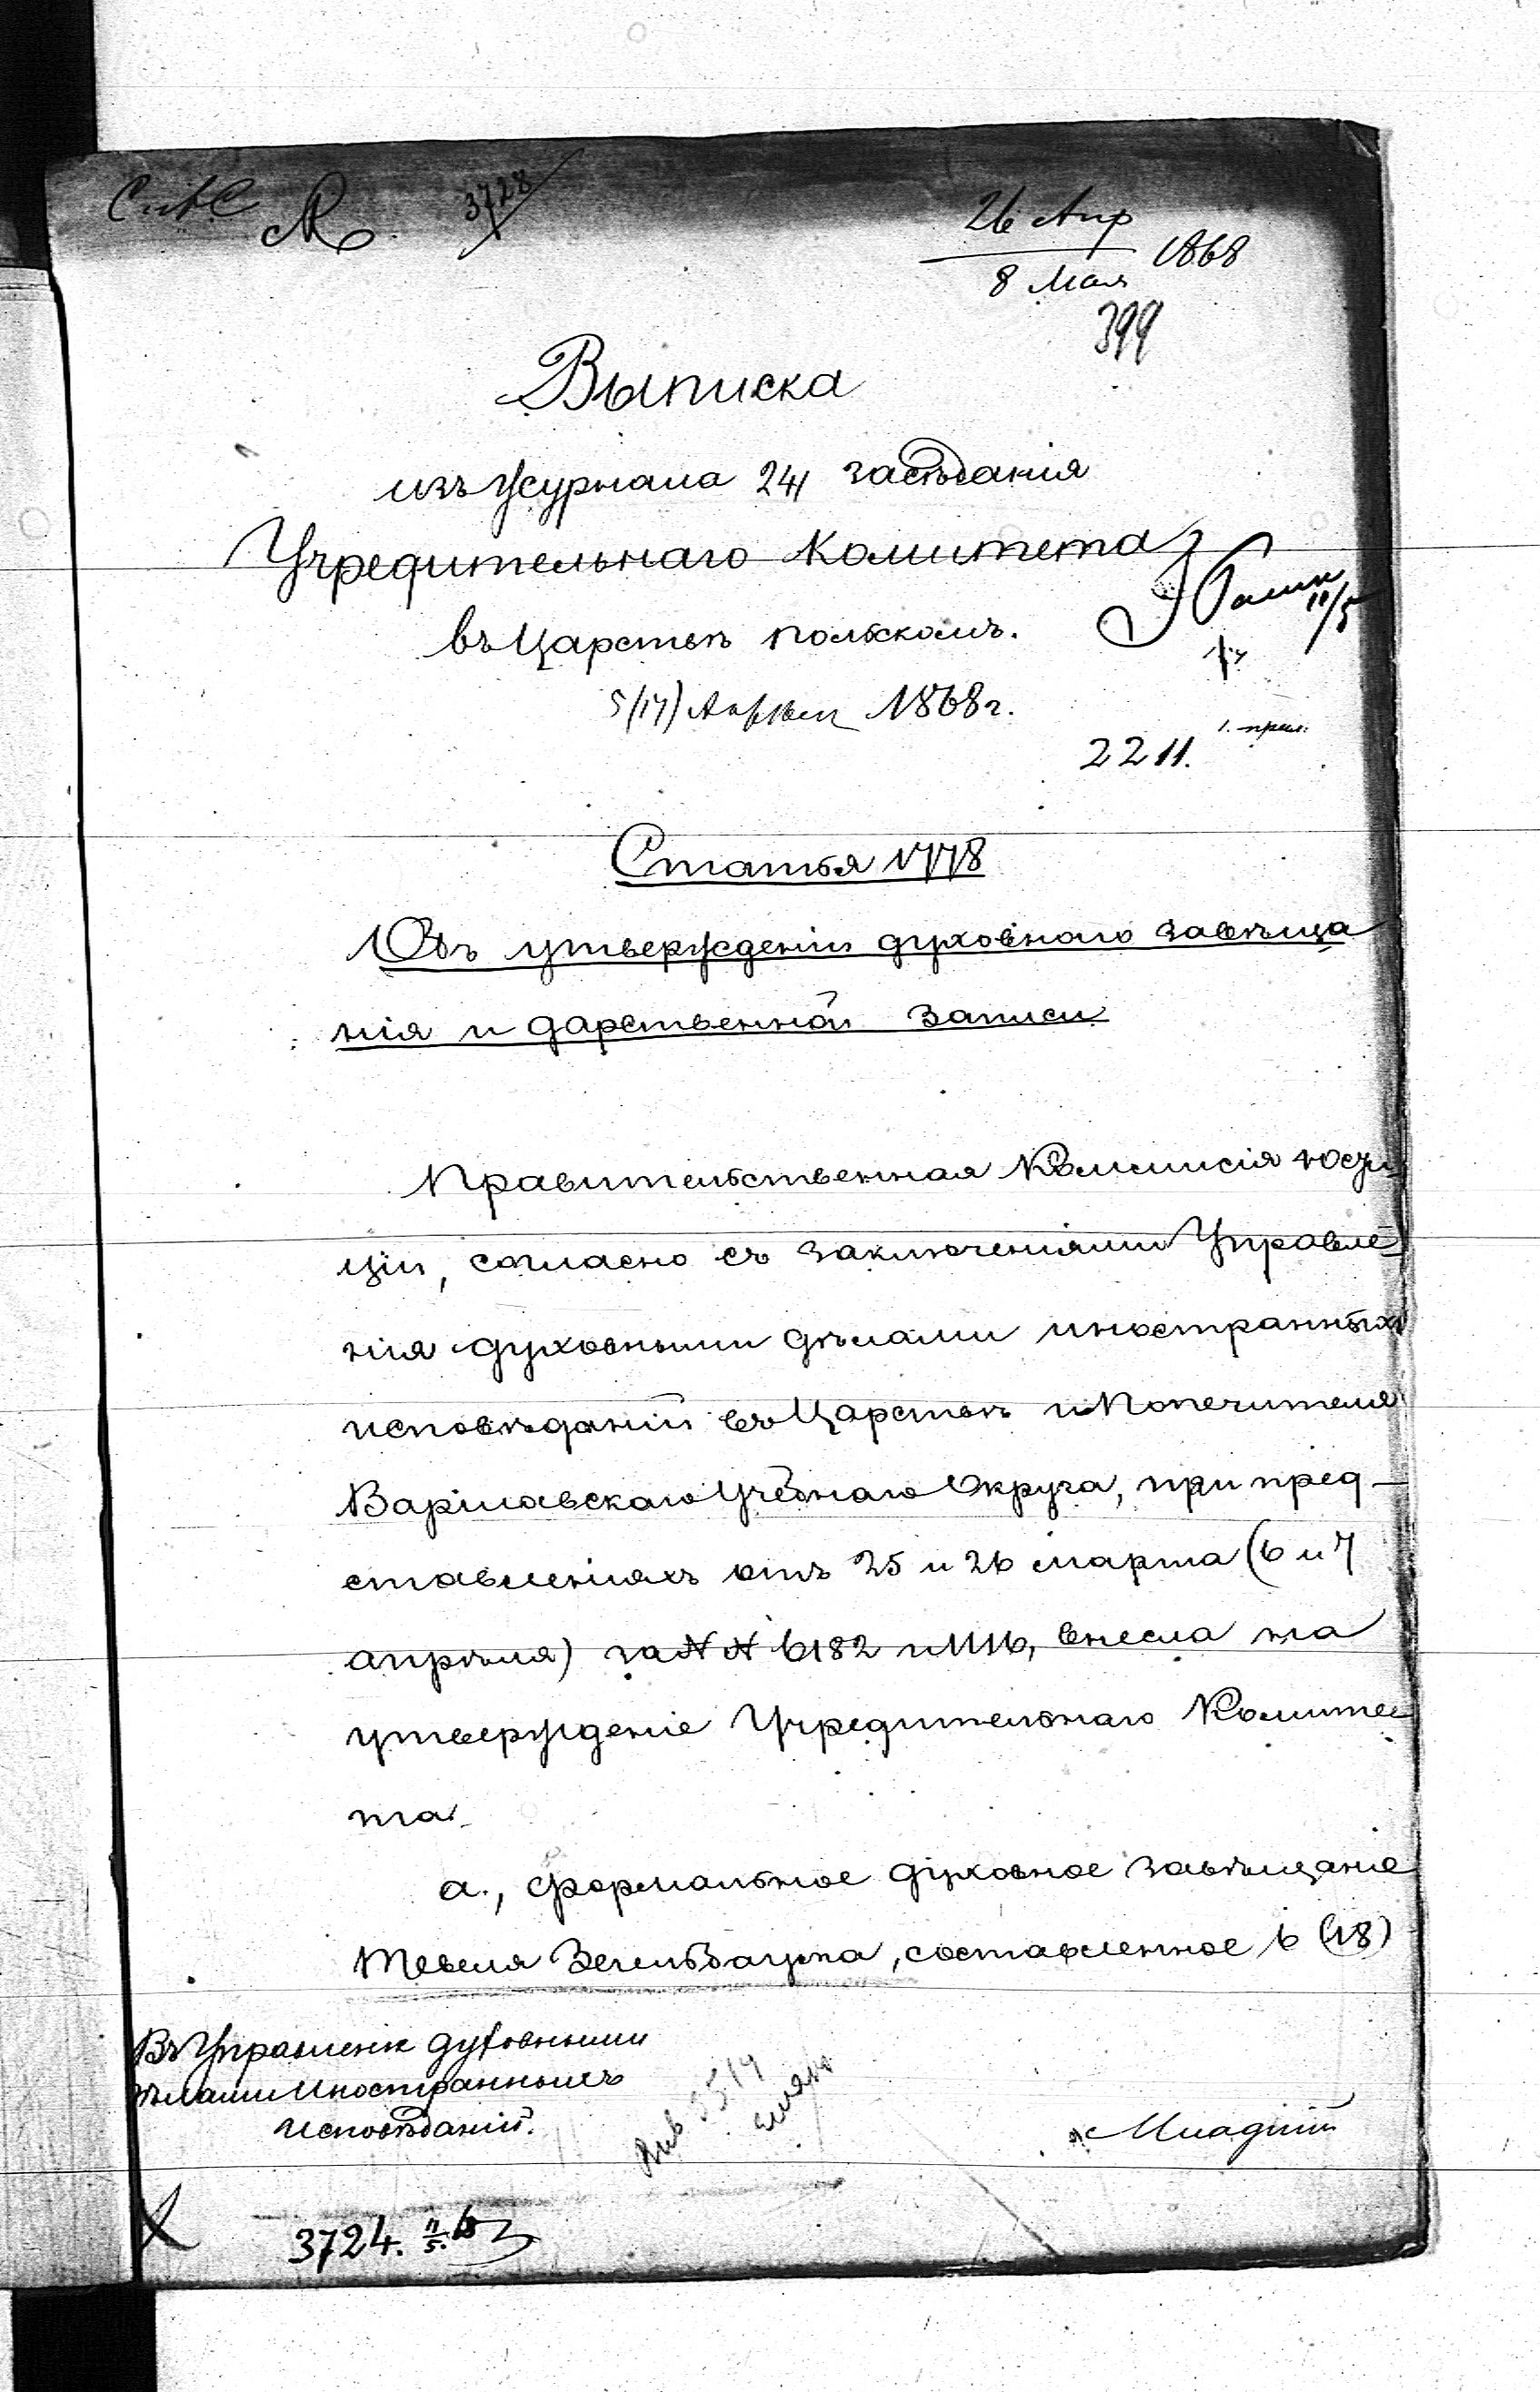 3728
26 Апр
8 Мая 1868
399
Выписка
изъ журнала 241 засѣданія
Учредительнаго Комитета
въ Царствѣ Польскомъ.
5/17) Апрѣля 1868 г.
1. прил.
2211.
Статья 1778
Объ утвержденіи духовнаго завѣща
нія и дарственной записи
Правительственная Коммисія юсти
ціи, согласно съ заключеніями Управле
нія духовными дѣлами иностранныхъ
исповѣданій въ Царствѣ и Попечителя
Варшавскаго Учебнаго Округа, при пред-
ставленіяхъ отъ 25 и 26 марта (6 и 7
апрѣля) за №№ 6182 и 1116, внесла на
утвержденіе Учредительнаго Комите
та
а., формальное духовное завѣщаніе
Тевеля Зегельбаума, составленное 6 (18)
Въ Управленіе духовными
дѣлами Иностранныхъ
Исповѣданій.
Младшій
3724.